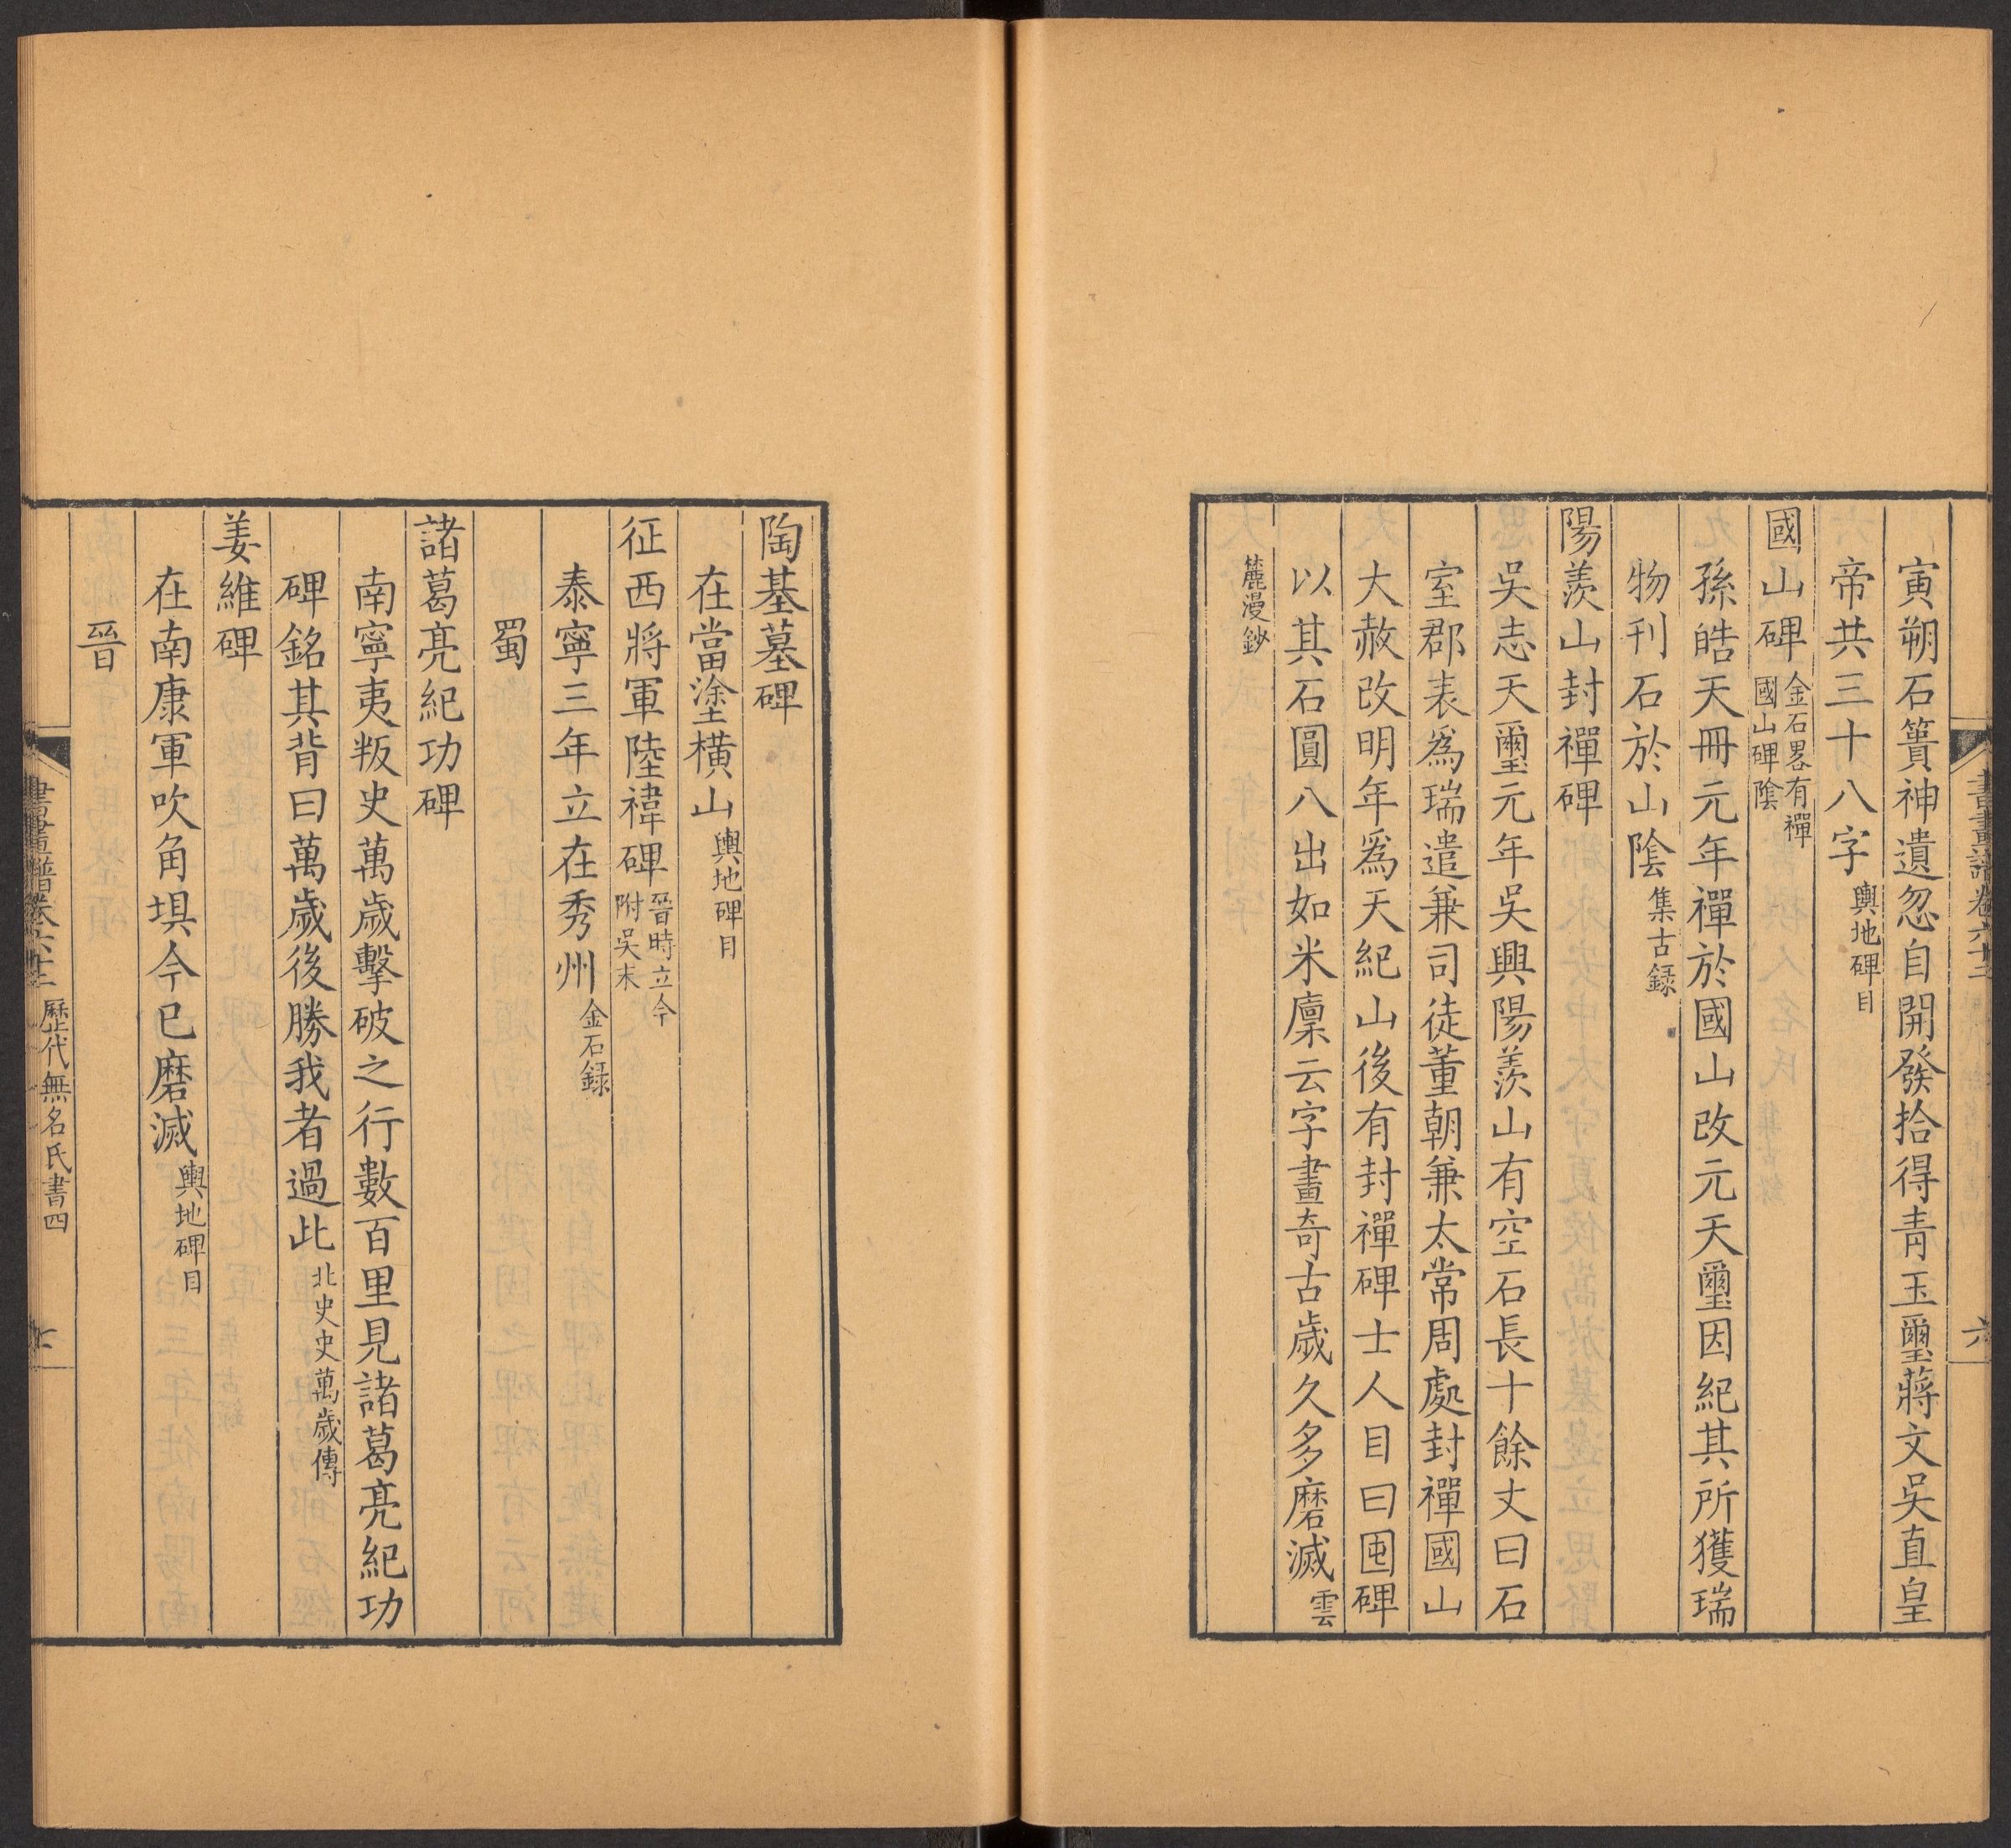 寅朔石簣神遺忽自開發拾得青玉璽蔣文吳直皇
帝共三十八字輿地碑目
國山碑金石畧有禪國山碑陰
孫皓天冊元年禪於國山改元天璽因紀其所獲瑞
物刊石於山陰集古録
陽羨山封禪碑
吳志天璽元年吳興陽羨山有空石長十餘丈曰石
室郡表爲瑞遣兼司徒董朝兼太常周處封禪國山
大赦改明年爲天紀山後有封禪碑士人目曰囤碑
以其石圓八出如米廪云字畫奇古歲久多磨滅雲
麓漫鈔
陶基墓碑
在當塗橫山輿地碑目
征西將軍陸禕碑晉時立今附吳末
泰寧三年立在秀州金石録
蜀
諸葛亮紀功碑
南寧夷叛史萬歲擊破之行數百里見諸葛亮紀功
碑銘其背曰萬歲後勝我者過此北史史萬歲傳
姜維碑
在南康軍吹角垻今已磨滅輿地碑目
晉
書畫譜卷六十二 歷代無名氏書四 七